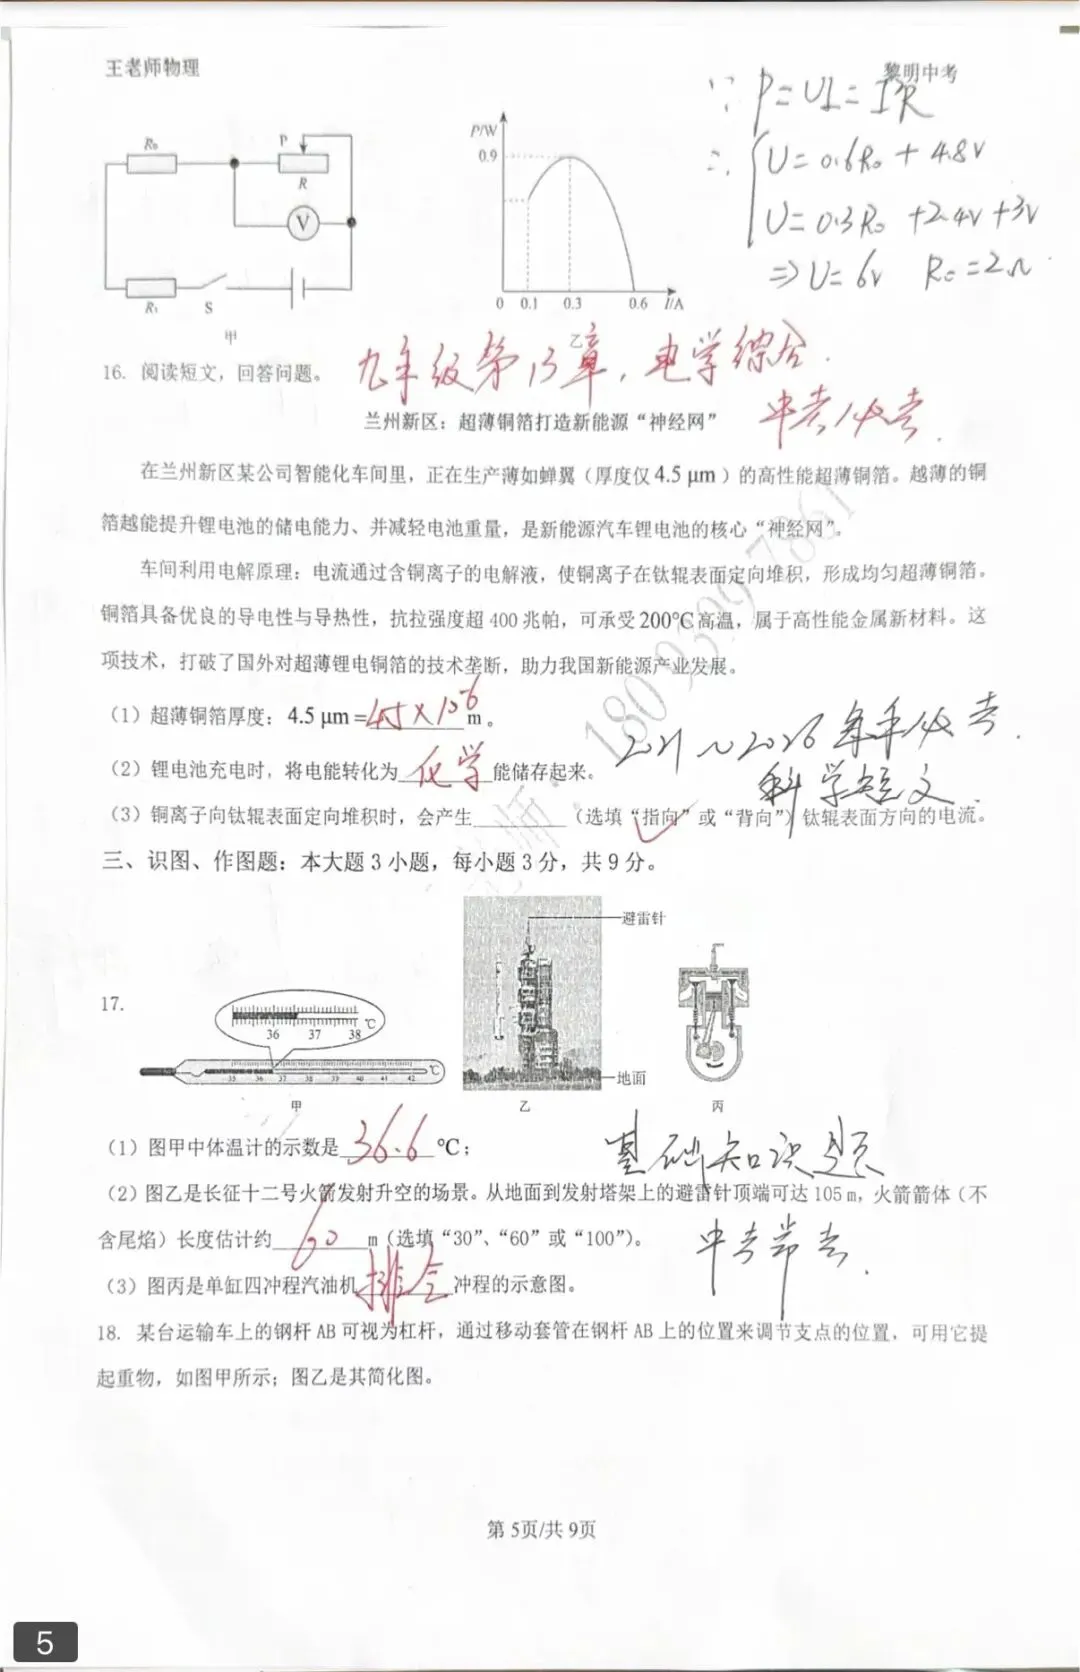 王老师物理
黎明中考
∵ P=UI=I²R
∴ U=0.6R₀+4.8V
U=0.3R₀+2.4V+3V
⇒U=6V R₀=2Ω
R₀
P
R
V
R₁
S
甲
P/W
0.9
0 0.1 0.3 0.6 I/A
乙
九年级第13章,电学综合.
16. 阅读短文,回答问题。
中考必考.
兰州新区:超薄铜箔打造新能源“神经网”
在兰州新区某公司智能化车间里,正在生产薄如蝉翼(厚度仅 4.5 μm )的高性能超薄铜箔。越薄的铜
箔越能提升锂电池的储电能力、并减轻电池重量,是新能源汽车锂电池的核心“神经网”。
车间利用电解原理:电流通过含铜离子的电解液,使铜离子在钛辊表面定向堆积,形成均匀超薄铜箔。
铜箔具备优良的导电性与导热性,抗拉强度超 400 兆帕,可承受 200℃高温,属于高性能金属新材料。这
项技术,打破了国外对超薄锂电铜箔的技术垄断,助力我国新能源产业发展。
(1)超薄铜箔厚度:4.5 μm = 4.5×10⁻⁶ m 。
2021~2026年年必考.
(2)锂电池充电时,将电能转化为 化学 能储存起来。
科学短文.
(3)铜离子向钛辊表面定向堆积时,会产生________(选填“指向”或“背向”)钛辊表面方向的电流。
三、识图、作图题:本大题 3 小题,每小题 3 分,共 9 分。
避雷针
17.
36 37 38 ℃
35 36 37 38 39 40 41 42 ℃
地面
甲
乙
丙
(1)图甲中体温计的示数是 36.6 ℃;
基础知识题
(2)图乙是长征十二号火箭发射升空的场景。从地面到发射塔架上的避雷针顶端可达 105 m,火箭箭体(不
含尾焰)长度估计约 60 m(选填“30”、“60”或“100”)。
中考常考.
(3)图丙是单缸四冲程汽油机 排气 冲程的示意图。
18. 某台运输车上的钢杆 AB 可视为杠杆,通过移动套管在钢杆 AB 上的位置来调节支点的位置,可用它提
起重物,如图甲所示;图乙是其简化图。
第 5页/共 9页
5